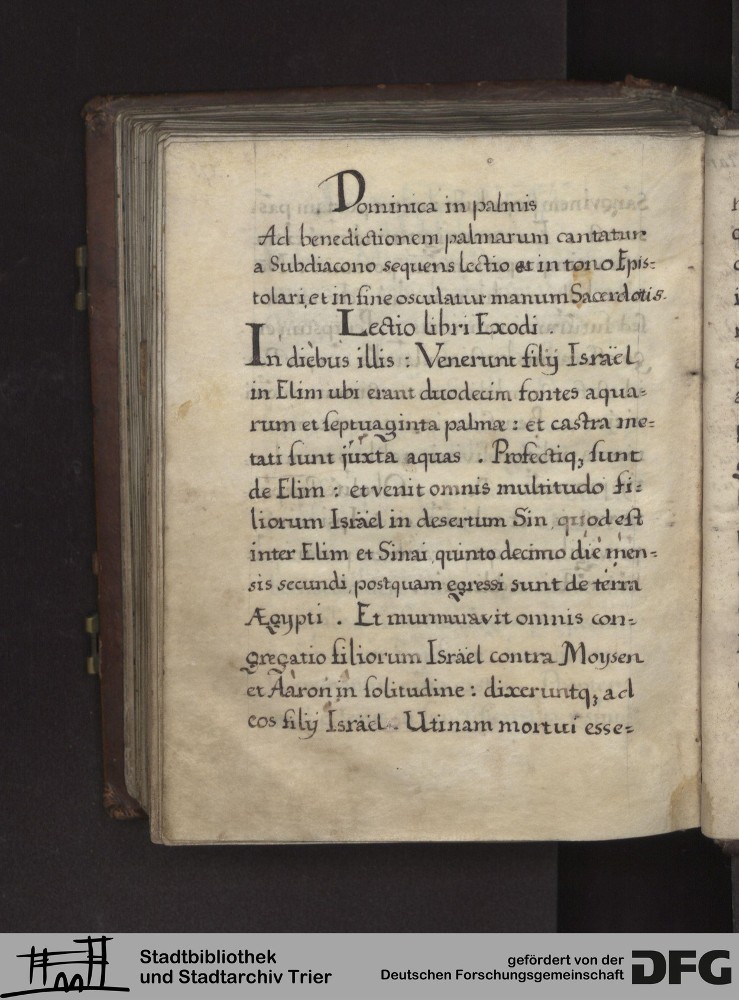 Dominica in palmis
Ad benedictionem palmarum cantatur
a Subdiacono sequens lectio et in tono Epis:
tolari, et in fine osculatur manum Sacerdotis.
Lectio libri Exodi .
In dièbus illis : Venerunt filij Israël
in Elim ubi erant duodecim fontes aqua=
rum et septuaginta palmæ : et castra me=
tati sunt juxta aquas . Profectiq, sunt
de Elim : et venit omnis multitudo fi=
liorum Israël in desertum Sin, quod est
inter Elim et Sinai, quinto decimo die men=
sis secundi, postquam egressi sunt de terra
Ægypti . Et murmuravit omnis con=
gregatio filiorum Israël contra Moysen
et Aaron in solitudine : dixeruntq, ad
eos filij Israël . Utinam mortui esse=
Stadtbibliothek
und Stadtarchiv Trier
gefördert von der
Deutschen Forschungsgemeinschaft
DFG